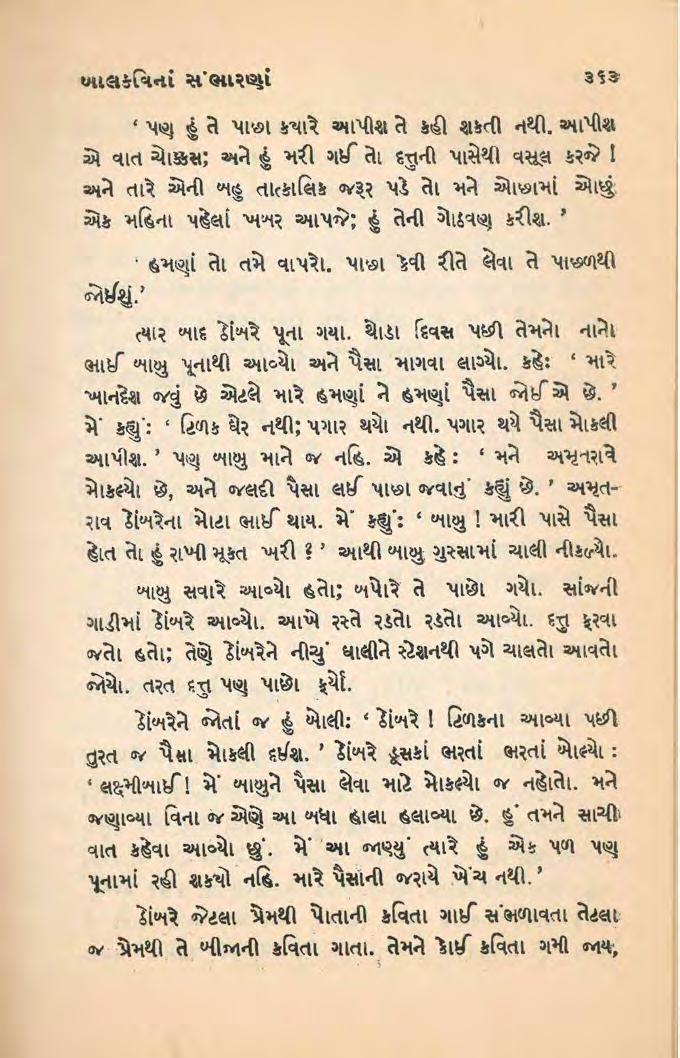 બાલકવિનાં સંભારણાં ૩૬૩
‘ પણ હું તે પાછા ક્યારે આપીશ તે કહી શકતી નથી. આપીશ
એ વાત ચોક્કસ; અને હું મરી ગઈ તો દત્તુની પાસેથી વસૂલ કરજે !
અને તારે એની બહુ તાત્કાલિક જરૂર પડે તો મને ઓછામાં ઓછું
એક મહિના પહેલાં ખબર આપજે; હું તેની ગોઠવણ કરીશ. ’
‘ હમણાં તો તમે વાપરો. પાછા કેવી રીતે લેવા તે પાછળથી
જોઈશું.’
ત્યાર બાદ ઠોંબરે પૂના ગયા. થોડા દિવસ પછી તેમનો નાનો
ભાઈ બાબુ પૂનાથી આવ્યો અને પૈસા માગવા લાગ્યો. કહેઃ ‘ મારે
ખાનદેશ જવું છે એટલે મારે હમણાં ને હમણાં પૈસા જોઈએ છે. ’
મેં કહ્યુંઃ ‘ ટિળક ઘેર નથી; પગાર થયો નથી. પગાર થયે પૈસા મોકલી
આપીશ. ’ પણ બાબુ માને જ નહિ. એ કહે : ‘ મને અમૃતરાવે
મોકલ્યો છે, અને જલદી પૈસા લઈ પાછા જવાનું કહ્યું છે. ’ અમૃત-
રાવ ઠોંબરેના મોટા ભાઈ થાય. મેં કહ્યુંઃ ‘ બાબુ ! મારી પાસે પૈસા
હોત તો હું રાખી મૂકત ખરી ? ’ આથી બાબુ ગુસ્સામાં ચાલી નીકળ્યો.
બાબુ સવારે આવ્યો હતો; બપોરે તે પાછો ગયો. સાંજની
ગાડીમાં ઠોંબરે આવ્યો. આખે રસ્તે રડતો રડતો આવ્યો. દત્તુ ફરવા
જતો હતો; તેણે ઠોંબરેને નીચું ઘાલીને સ્ટેશનથી પગે ચાલતો આવતો
જોયો. તરત દત્તુ પણ પાછો ફર્યો.
ઠોંબરેને જોતાં જ હું બોલીઃ ‘ ઠોંબરે ! ટિળકના આવ્યા પછી
તુરત જ પૈસા મોકલી દઈશ. ’ ઠોંબરે ડૂસકાં ભરતાં ભરતાં બોલ્યો :
‘ લક્ષ્મીબાઈ ! મેં બાબુને પૈસા લેવા માટે મોકલ્યો જ નહોતો. મને
જણાવ્યા વિના જ એણે આ બધા હાલા હલાવ્યા છે. હું તમને સાચી
વાત કહેવા આવ્યો છું. મેં આ જાણ્યું ત્યારે હું એક પળ પણ
પૂનામાં રહી શક્યો નહિ. મારે પૈસાની જરાયે ખેંચ નથી.’
ઠોંબરે જેટલા પ્રેમથી પોતાની કવિતા ગાઈ સંભળાવતા તેટલા
જ પ્રેમથી તે બીજાની કવિતા ગાતા. તેમને કોઈ કવિતા ગમી જાય,